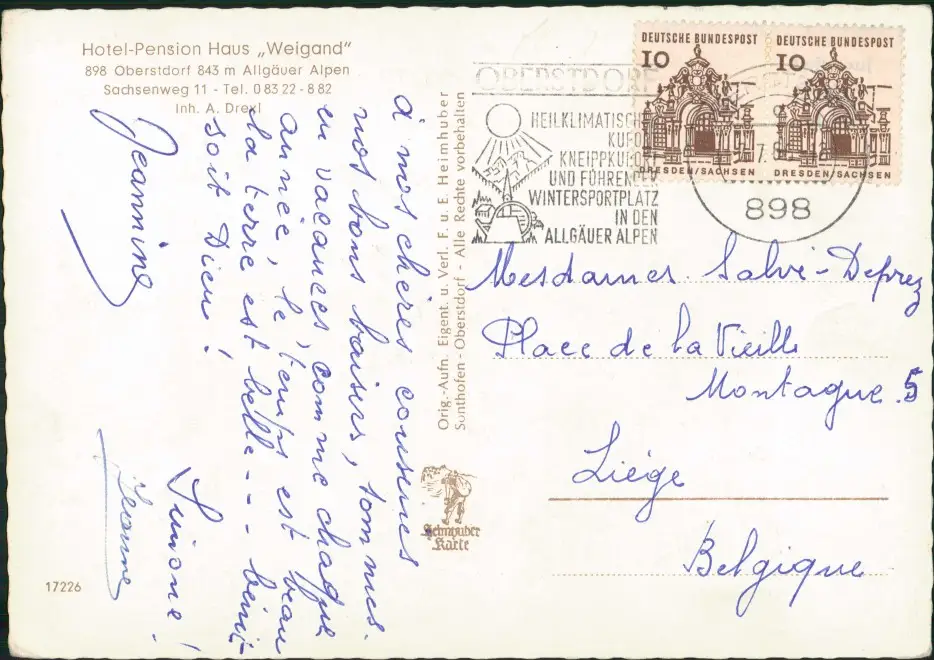 Hotel-Pension Haus „Weigand"
898 Oberstdorf 843 m Allgäuer Alpen
Sachsenweg 11 - Tel. 0 83 22 - 8 82
Inh. A. Drexl
à mes chères cousines
nos bons baisers, sommes
en vacances, comme chaque
année, le temps est beau
la terre est belle - - - béni-
soit Dieu !
Jeannine
Simone !
Jeanne
17226
Orig.-Aufn. Eigent. u. Verl. F. u. E. Heimhuber
Sonthofen - Oberstdorf - Alle Rechte vorbehalten
Heimhuber
Karte
OBERSTDORF
HEILKLIMATISCHER
KURORT
KNEIPPKURORT
UND FÜHRENDER
WINTERSPORTPLATZ
IN DEN
ALLGÄUER ALPEN
898
DEUTSCHE BUNDESPOST
10
DRESDEN/SACHSEN
DEUTSCHE BUNDESPOST
10
DRESDEN/SACHSEN
Mesdames Salvi-Deprez
Place de la Vieille
Montagne 5
Liège
Belgique